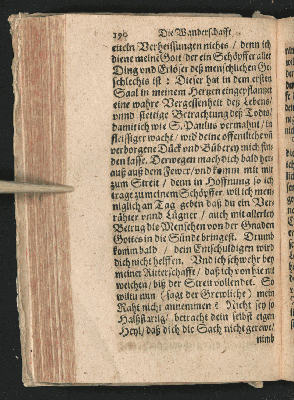 196 Die Wanderschafft
euteln Verheissungen nichts / denn ich
diene meine Gott / der ein Schöpffer aller
Ding vnd Erlöser deß menschlichen Ge-
schlechts ist : Dieser hat in dem ersten
Saal in meinem Hertzen eingepflantzt
eine wahre Vergessenheit deß Lebens /
vnnd stettige Betrachtung deß Todts /
damit ich wie S. Paulus vermahnt / in
fleissiger wacht / wid deine öffentliche vñ
verborgene Dück vnd Büberey mich fin-
den lasse. Derwegen mach dich bald her-
auß auß dem Fewer / vnd komm mit mir
zum Streit / denn in Hoffnung so ich
trage zu meinem Schöpffer / will ich men-
niglich an Tag geben daß du ein Ver-
rähter vnnd Lügner / auch mit allerley
Betrug die Menschen von der Gnaden
Gottes in die Sünde bringest. Drumb
komm bald / dein Entschuldigen wird
dich nicht helffen. Vnd ich schwehr bey
meiner Ritterschafft / daß ich von hie nit
weichen / biß der Streit vollendet. So
wiltu nun (sagt der Grewliche) mein
Raht nicht annemmen ? Nicht sey so
Halßstarrig / betracht dein selbst eigen
Heyl / daß dich die Sach nicht gerewe /
nimb